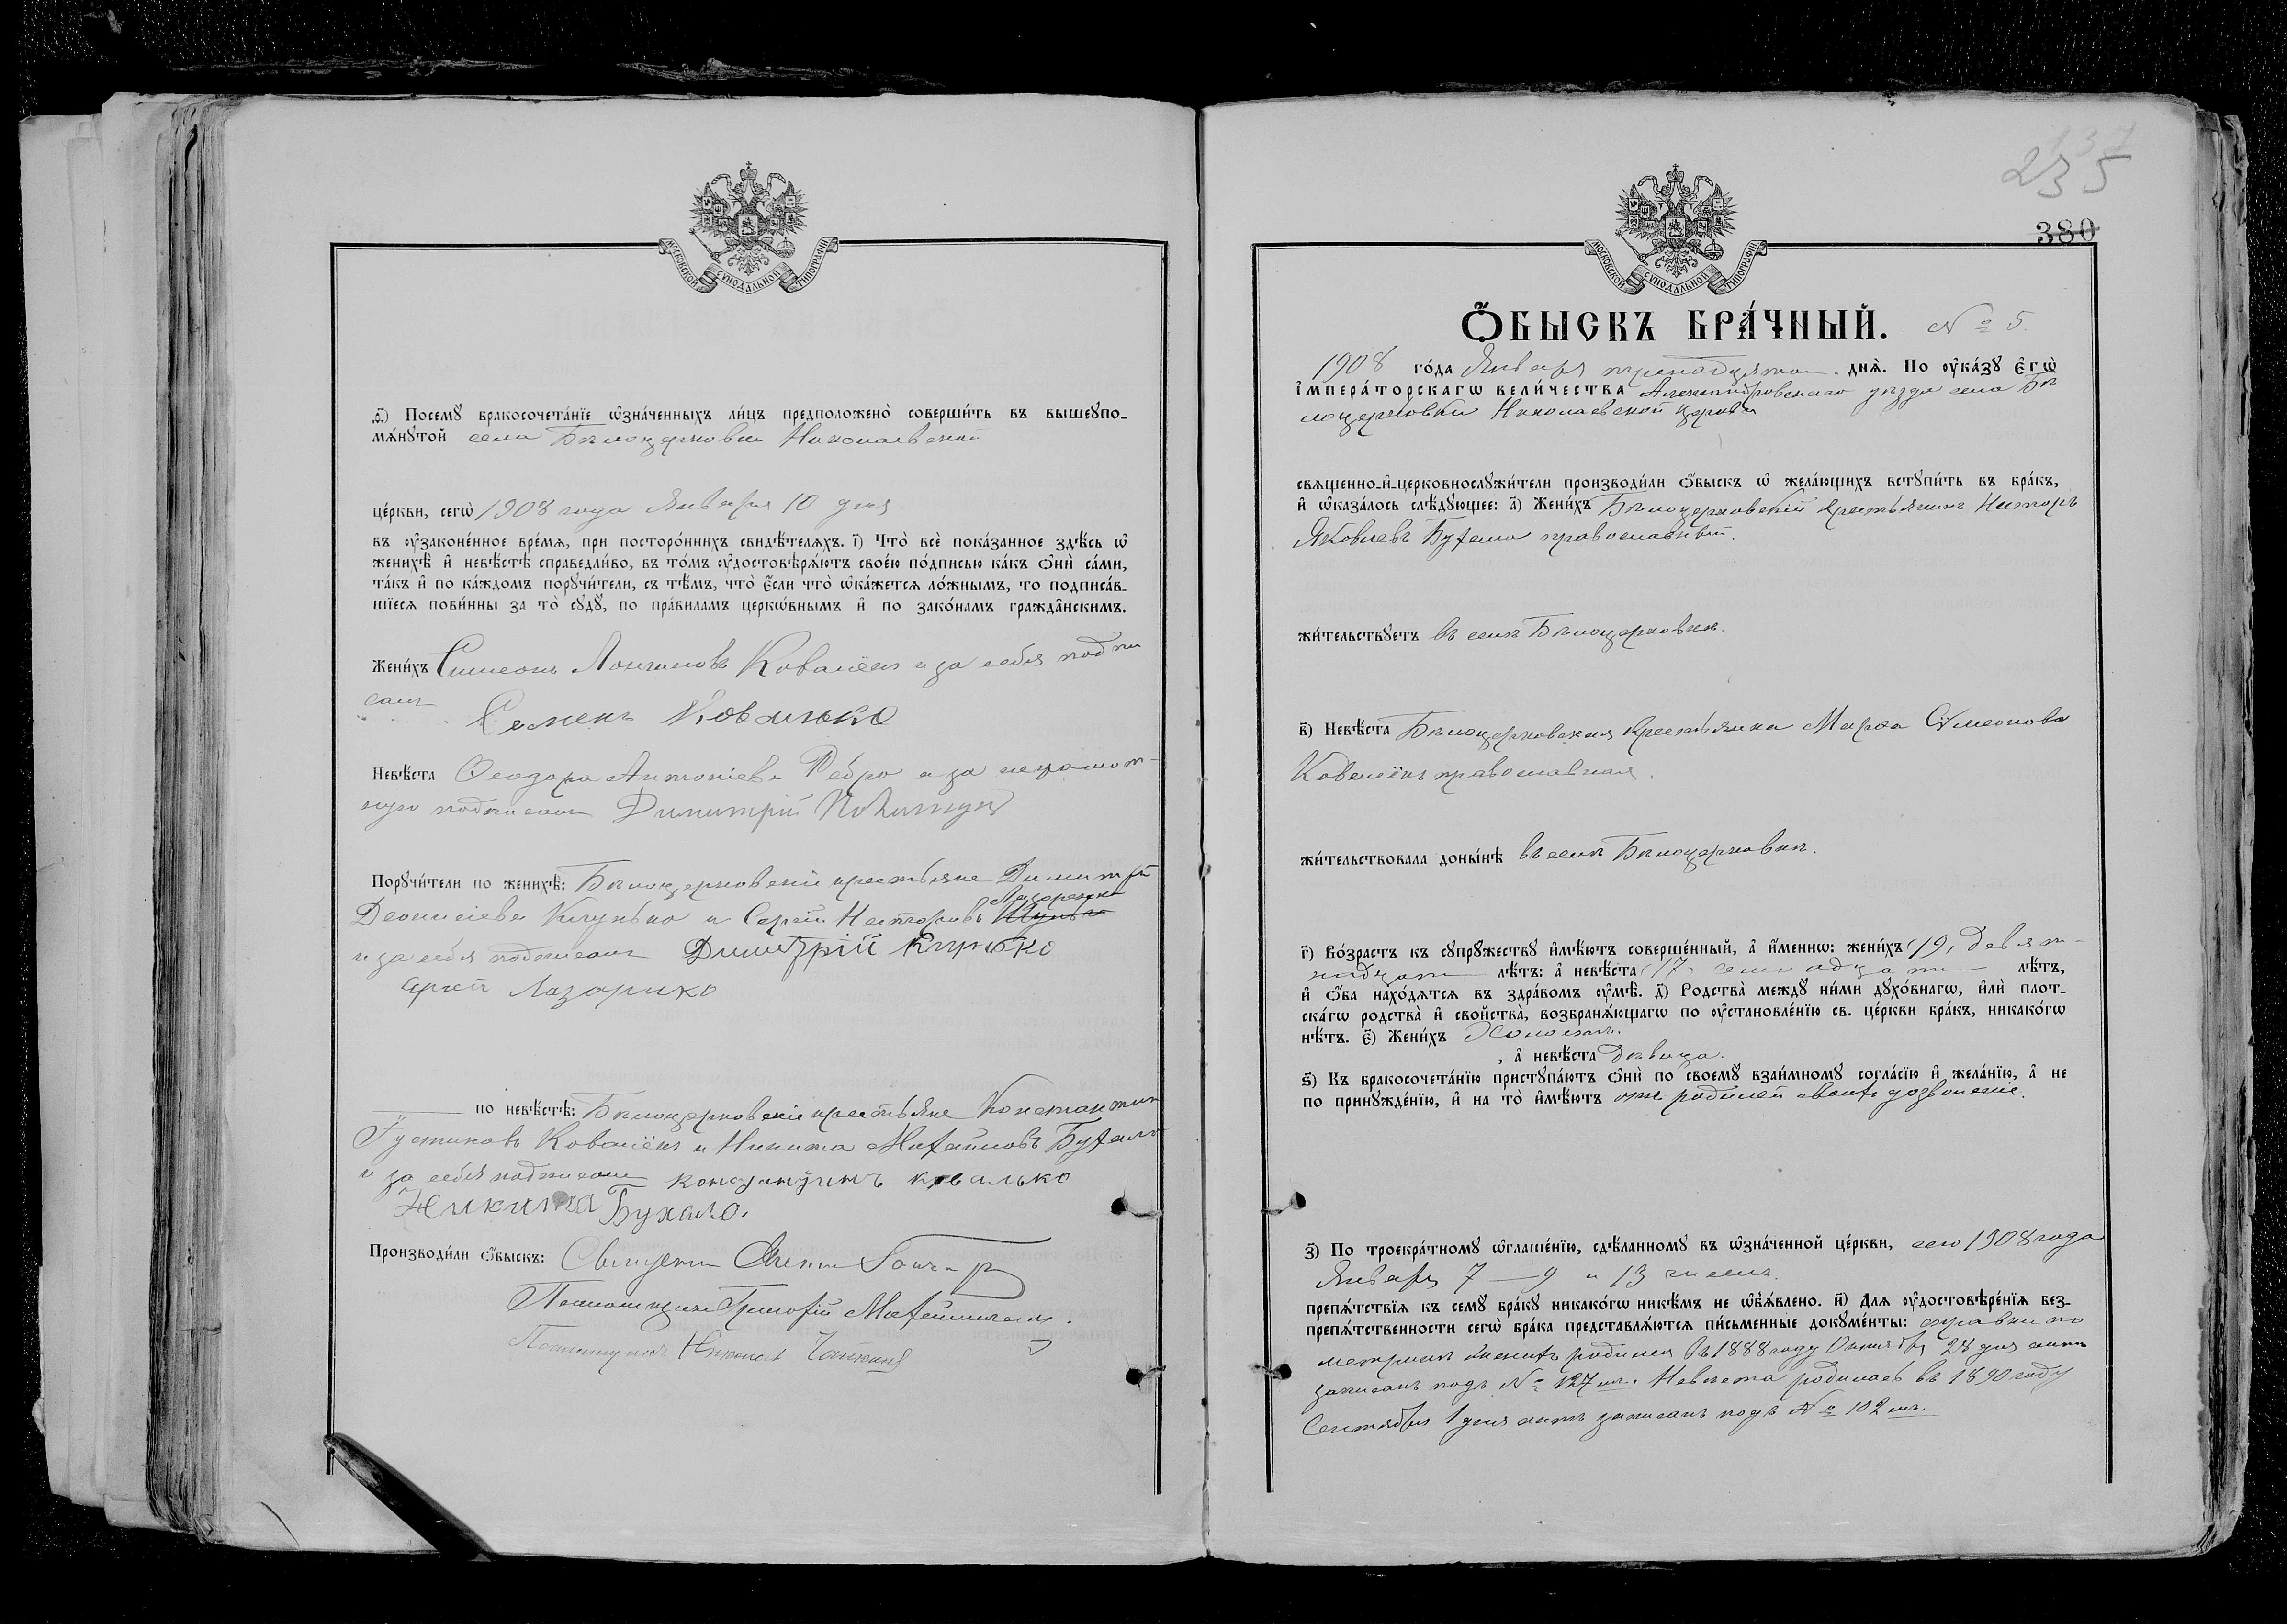 МОСКОВСКОЙ СѴНОДАЛЬНОЙ ТИПОГРАФІИ
ѳ҃) Посемꙋ бракосочета́нїе ѡ҆зна́ченныхъ ли́цъ предположено̀ соверши́ть въ вышеꙋпо-
мѧ́нꙋтой села Бѣлоцерковки Николаевской
це́ркви, сегѡ̀ 1908 года Января 10 дня.
въ ᲂу҆законе́нное вре́мѧ, при посторо́ннихъ свидѣ́телѧхъ. і҃) Что̀ всѐ пока́занное здѣ́сь ѡ҆
женихѣ̀ и҆ невѣ́стѣ справедли́во, въ то́мъ ᲂу҆достовѣрѧ́ютъ свое́ю по́дписью ка́къ ѻ҆нѝ са́ми,
та́къ и҆ по ка́ждомъ порꙋчи́тели, съ тѣ́мъ, что̀ є҆́сли что̀ ѡ҆ка́жетсѧ ло́жнымъ, то подписа́в-
шїесѧ пови́нны за то̀ сꙋдꙋ̀, по пра́виламъ церкѡ́внымъ и҆ по зако́намъ гражда̑нскимъ.
Жени́хъ Симеонъ Логиновъ Ковалёкъ и за себя подпи
салъ
Семенъ Ковалько
Невѣ́ста Ѳеодора Антоніева Ребро а за неграмот-
ную подписалъ Димитрій
Порꙋчи́тели по женихѣ̀: Бѣлоцерковскіе крестьяне Димитрій
Лазоренко
Діонисіевъ Кцунько и Сергій Несторовъ
и за себя подписали Димитрій
Сергей Лазорнко
по невѣ́стѣ: Бѣлоцерковскіе крестьяне Константин
Густиновъ Ковалёкъ и Никита Михайловъ Бухало
и за себя подписали Константинъ ковалько
Никита Бухало.
Производи́ли ѻ҆́быскъ: Священникъ Гончар
Псаломщикъ Григорій
Псаломщикъ Николай
137
235
380
МОСКОВСКОЙ СѴНОДАЛЬНОЙ ТИПОГРАФІИ
Ѻ҆́БЫСКЪ БРА́ЧНЫЙ. № 5.
1908 го́да Января тринадцатаго днѧ̀. По ᲂу҆ка́зꙋ Є҆гѡ̀
І҆мпера́торскагѡ вели́чества Александровскаго уѣзда села Бѣ
лоцерковки Николаевской церкви
свѧщенно-и҆-церковнослꙋжи́тели производи́ли ѻ҆́быскъ ѡ҆ жела́ющихъ встꙋпи́ть въ бра́къ,
и҆ ѡ҆каза́лось слѣ́дꙋющее: а҃) Жени́хъ Бѣлоцерковскій крестьянинъ Несторъ
Яковлевъ Бухало православный.
жи́тельствꙋетъ въ селѣ Бѣлоцерковкѣ.
в҃) Невѣ́ста Бѣлоцерковская крестьянка Марѳа Сѵмеонова
Ковалёкъ православная.
жи́тельствовала доны́нѣ въ селѣ Бѣлоцерковкѣ.
г҃) Во́зрастъ къ сꙋпрꙋ́жествꙋ и҆мѣ́ютъ соверше́нный, а҆ и҆́меннѡ: жени́хъ 19, девят-
надцать лѣ́тъ: а҆ невѣ́ста 17, семнадцать лѣ́тъ,
и҆ ѻ҆́ба нахо́дѧтсѧ въ здра́вомъ ᲂу҆мѣ̀. д҃) Родства̀ междꙋ̀ ни́ми дꙋхо́внагѡ, и҆лѝ плот-
ска́гѡ родства̀ и҆ свойства̀, возбранѧ́ющагѡ по ᲂу҆становле́нїю св. це́ркви бра́къ, никако́гѡ
нѣ́тъ. є҃) Жени́хъ Холостъ.
, а҆ невѣ́ста дѣвица.
ѕ҃) Къ бракосочета́нїю пристꙋпа́ютъ ѻ҆нѝ по своемꙋ̀ взаи́мномꙋ согла́сїю и҆ жела́нїю, а҆ не
по принꙋжде́нїю, и҆ на то̀ и҆мѣ́ютъ отъ родителей своихъ дозволеніе.
з҃) По троекра́тномꙋ ѡ҆глаше́нїю, сдѣ́ланномꙋ въ ѡ҆зна́ченной це́ркви, сего 1908 года
Января 7 — 9 и 13 чиселъ.
препѧ́тствїѧ къ семꙋ̀ бра́кꙋ никако́гѡ никѣ́мъ не ѡ҆б̾ѧ́влено. и҃) Длѧ ᲂу҆достовѣре́нїѧ без-
препѧ́тственности сегѡ̀ бра́ка представлѧ́ютсѧ пи́сьменные докꙋме́нты: справки по
метрикѣ женихъ родился въ 1888 году Октября 28 дня актъ
записанъ подъ № 127 мъ. Невѣста родилась въ 1890 году
Сентября 1 дня актъ записанъ подъ № 102 мъ.